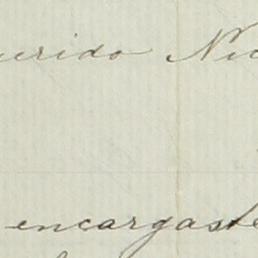 uerido Nic
encargaste